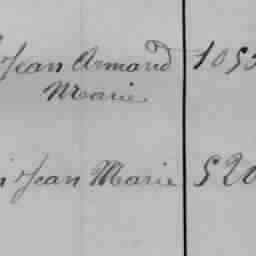 Jean Armand 105
Marie
Jean Marie 520